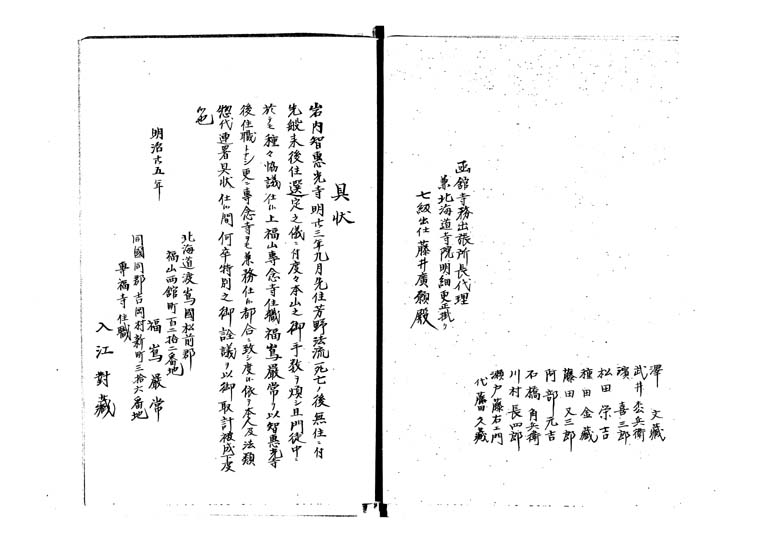 澤文藏
武井岙兵衛
濱喜三郎
松田榮吉
種田金藏
藤田又三郎
阿部元吉
石橋角兵衛
川村長四郎
瀬戸藤右エ門
代藤田久藏
函館寺務出張所長代理
兼北海道寺院明細更正掛リ
七級出仕藤井廣願殿
具状
岩内智惠光寺明廿三年九月先住芳野法流死亡ノ後無住ニ付
先般来後住選定之儀ニ付度々本山之御手数ヲ煩シ且門徒中ニ
於テモ種々協議仕候上福山專念寺住職福嶌嚴常ヲ以智惠光寺
後住職トナシ更ニ專念寺ヲモ兼務仕候都合ニ致シ度候依テ本人及法類
惣代連署具状仕候間何卒特別之御詮議ヲ以御取計被成下度
候也
明治廿五年
北海道渡嶌國松前郡
福山西館町百二拾二番地
福嶌嚴常
同國同郡吉岡村新町三拾六番地
專福寺住職
入江對藏